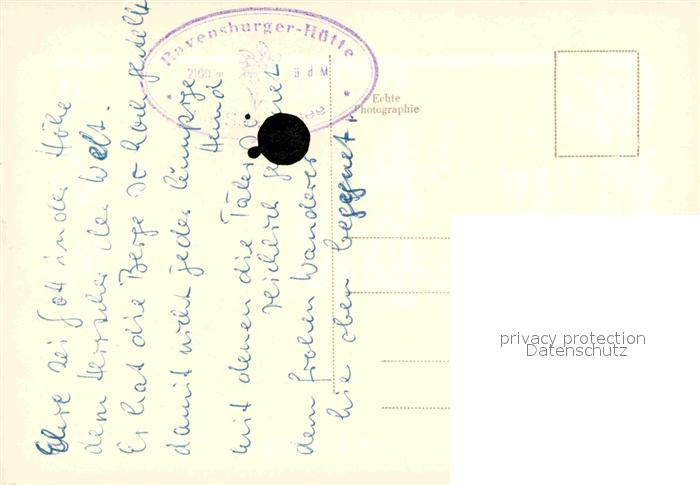 Ravensburger-Hütte
Echte
Photographie
Ehre sei Gott in der Höhe
dem Herrscher der Welt.
Er hat die Berge so hoch gestellt
damit nicht jeder
Hund
mit denen die Täler so
reichlich
dem frohen Wanderer
hie oben begegnet"
privacy protection
Datenschutz